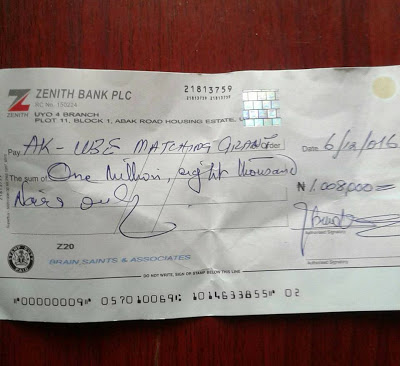 ZENITH BANK PLC
RC No. 150224
ZENITH
21813759
21813759 21813759
UYO 4 BRANCH
PLOT 11, BLOCK 1, ABAK ROAD HOUSING ESTATE,
Pay AK-UBE MATCHING GRANT or Order
Date 6/12/016
The sum of One million, eight thousand
Naira only
₦1,008,000=
Authorised Signature
Z20
BRAIN, SAINTS & ASSOCIATES
Authorised Signature
DO NOT WRITE, SIGN OR STAMP BELOW THIS LINE
00000009 057010069 1014633855 02